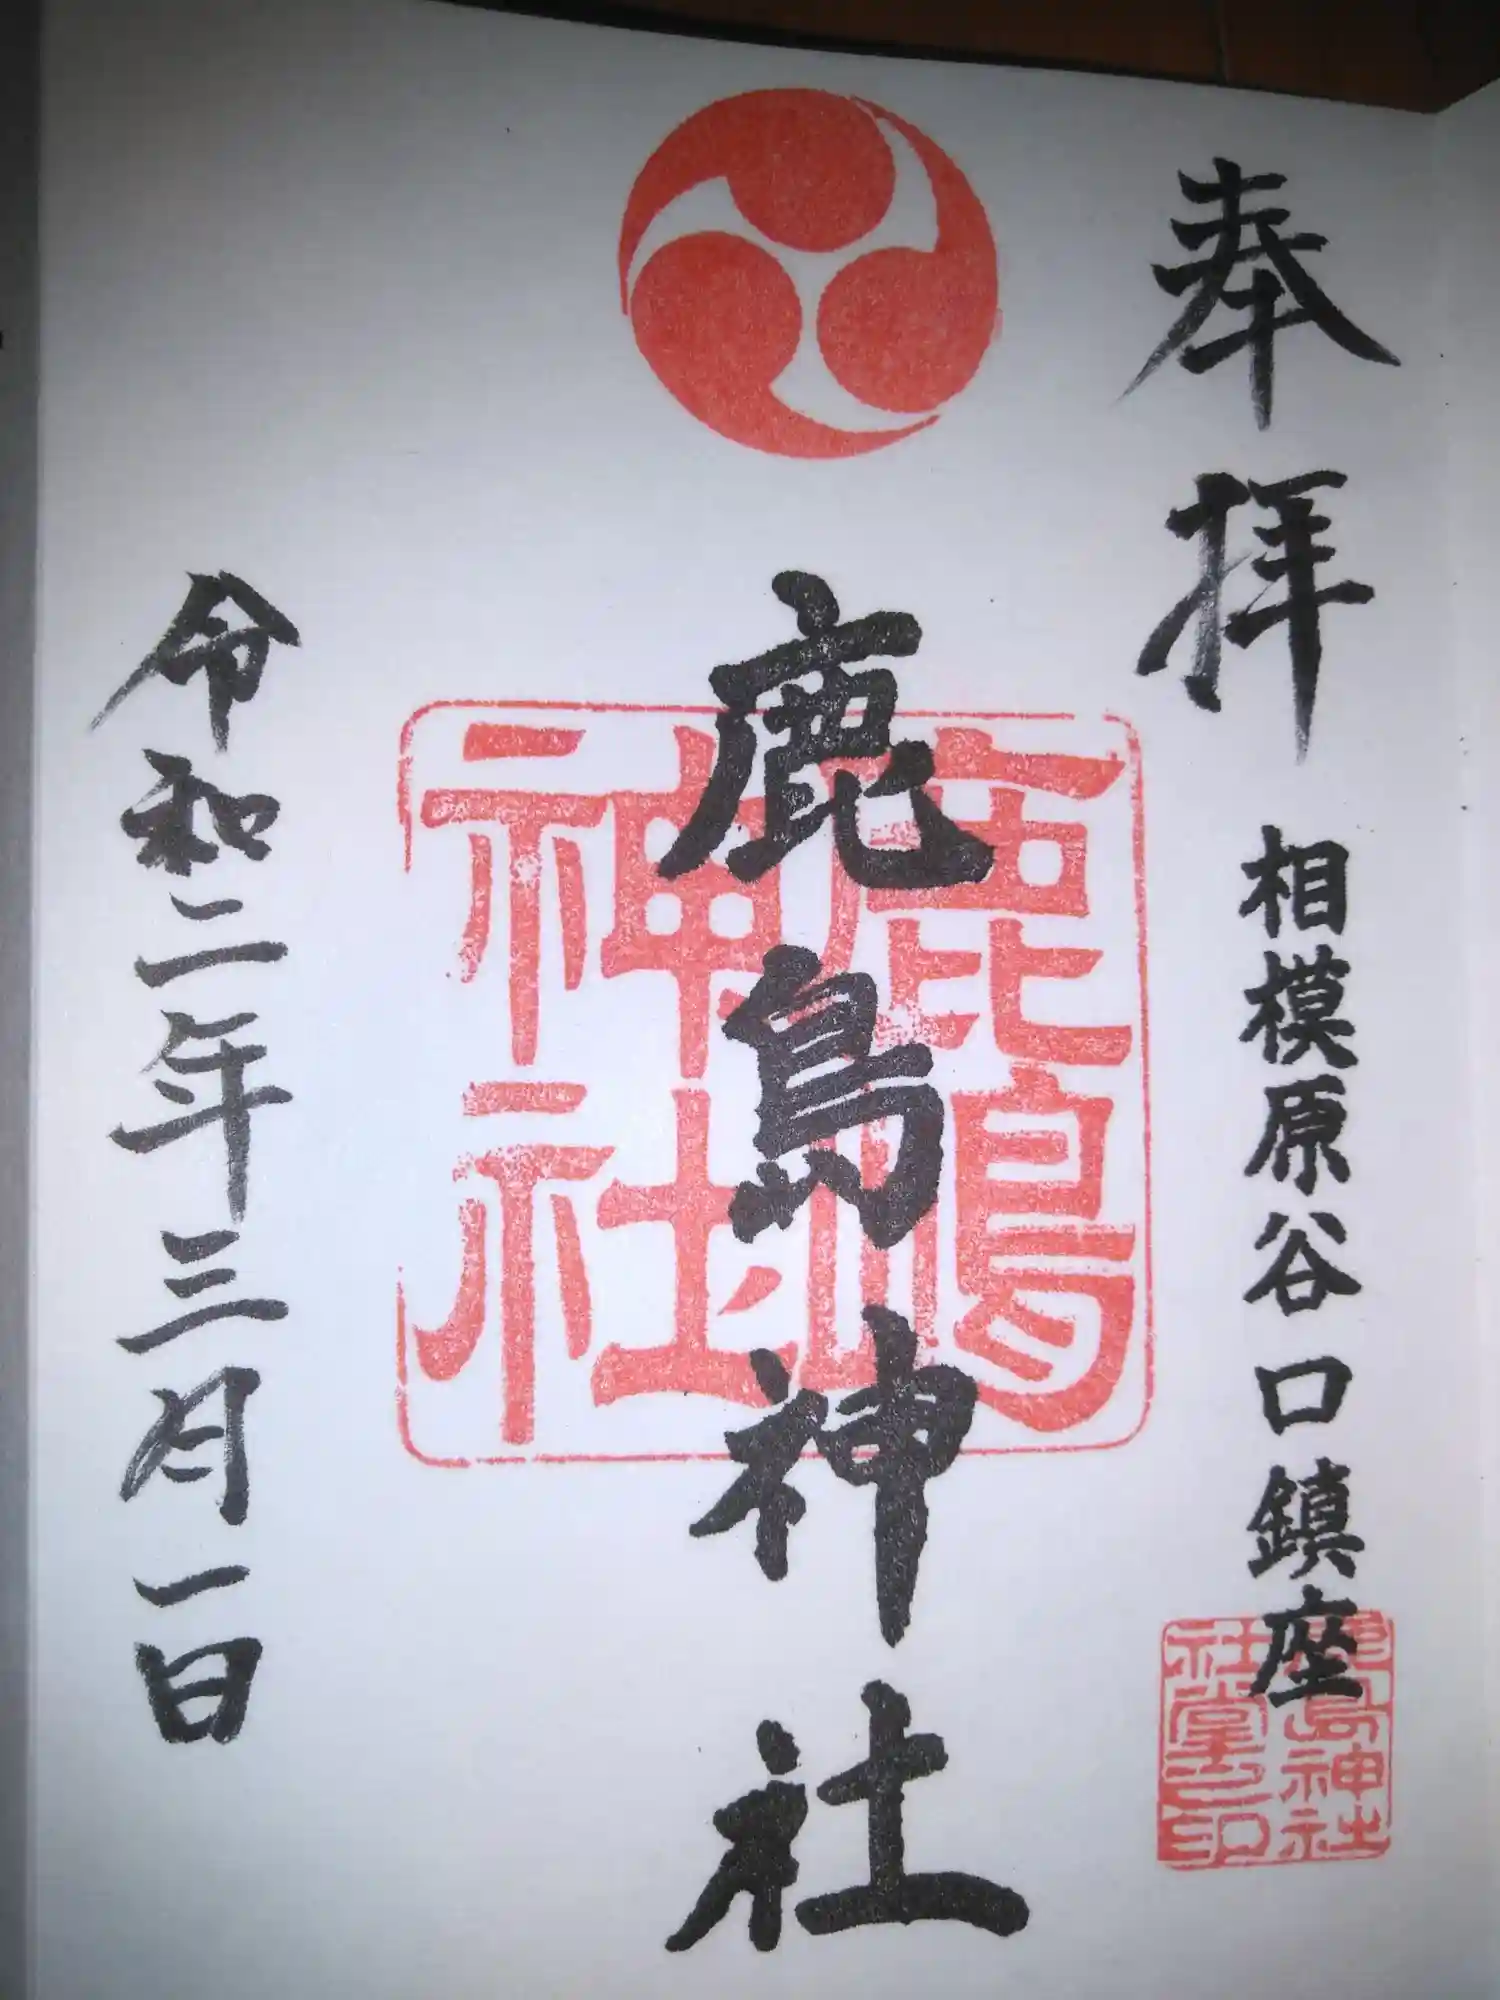 奉拝
相模原谷口鎮座
鹿島神社
鹿嶋神社
令和二年三月一日
鹿島神社
社掌之印